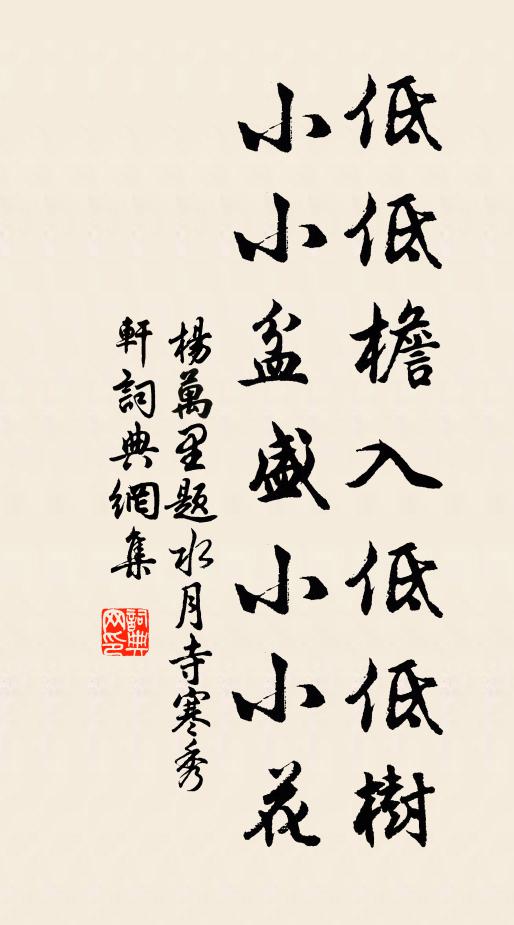 低低檐入低低樹
小小盆盛小小花
楊萬里題水月寺寒秀
軒詞典網集
詞典
网印